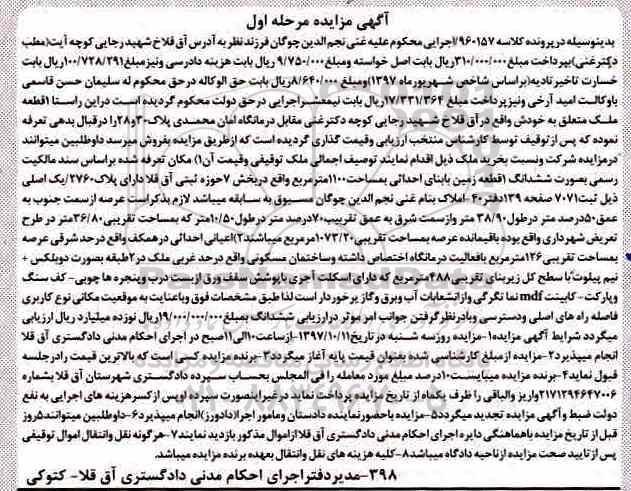 آگهی مزایده مرحله اول
بدینوسیله در پرونده کلاسه ۹۶۰۱۵۷/اجرایی محکوم علیه غنی نجم الدین چوگان فرزند نظر به آدرس آق قلاخ شهید رجایی کوچه آیت(مطب
دکترغنی)بپرداخت مبلغ۳۱۰/۰۰۰/۰۰۰ریال بابت اصل خواسته ومبلغ ۹/۷۵۰/۰۰۰ ریال بابت هزینه دادرسی ونیزمبلغ۱۰۰/۷۲۸/۲۹۱ریال بابت
خسارت تاخیر تادیه(براساس شاخص شهریور ماه ۱۳۹۷)ومبلغ ۸/۶۴۰/۰۰۰ریال بابت حق الوکاله در حق محکوم له سلیمان حسن قاسمی
باوکالت امید آرخی ونیزپرداخت مبلغ ۱۷/۳۳۱/۳۶۴ریال بابت نیمعشراجرایی درحق دولت محکوم گردیده است دراین راستا ۱قطعه
ملک متعلق به خودش واقع در آق قلاخ شهید رجایی کوچه دکترغنی مقابل درمانگاه امان محمدی پلاک۳۰و۲۸را درقبال بدهی تعرفه
نموده که پس ازتوقیف توسط کارشناس منتخب ارزیابی وقیمت گذاری گردیده است که ازطریق مزایده بفروش میرسد داوطلبین میتوانند
درمزایده شرکت ونسبت بخرید ملک ذیل اقدام نمایند توصیف اجمالی ملک توقیفی وقیمت آن۱) مکان تعرفه شده براساس سند مالکیت
رسمی بصورت ششدانگ ۱قطعه زمین بابنای احداثی بمساحت۱۱۰۰مترمربع واقع دربخش ۷حوزه ثبتی آق قلا دارای پلاک۲۷۶۰/یک اصلی
ذیل ثبت۷۰۷۱ صفحه ۱۳۹دفتر۴۰-املاک بنام غنی نجم الدین چوگان مسبوق به سابقه میباشد لازم بذکراست عرصه ازسمت جنوب به
عمق۵۰درصد متر درطول۳۸/۹۰ متر وازسمت شرق به عمق تقریبی۷۰درصد متر درطول۱۰/۵۰متر که بمساحت تقریبی۳۶/۸۰متر در طرح
تعریض شهرداری واقع بوده باقیمانده عرصه بمساحت تقریبی۱۰۷۳/۲۰مترمربع میباشند۲)اعیانی احداثی درهمکف واقع درحد شرقی عرصه
بمساحت تقریبی۱۲۶مترمربع بافعالیت درمانگاه اختصاص داشته وساختمان مسکونی واقع درحد غربی ملک در۲طبقه بصورت دوبلکس +
نیم پیلوت"با سطح کل زیربنای تقریبی۴۸۸مترمربع که دارای اسکلت آجری باپوشش سقف ورق ازست درب وپنجره ها چوبی- کف سنگ
وپارکت- کابینت mdf نما نگرگی وازانشعابات آب وبرق وگاز برخوردار است لذا طبق مشخصات فوق وباعنایت به موقعیت مکانی نوع کاربری
فاصله راه های اصلی ودسترسی وبادرنظرگرفتن جوانب امر موثر درارزیابی ششدانگ بمبلغ۱۹/۰۰۰/۰۰۰/۰۰۰ریال نوزده میلیارد ریال ارزیابی
میگردد شرایط آگهی مزایده۱-مزایده روزسه شنبه در تاریخ۱۳۹۷/۱۰/۱۱-ازساعت۱۰الی۱۱صبح در اجرای احکام مدنی دادگستری آق قلا
انجام میپذیرد۲-مزایده ازمبلغ کارشناسی شده بعنوان قیمت پایه آغاز میگردد۳-برنده مزایده کسی است که بالاترین قیمت رادرجلسه
قبول نماید۴-برنده مزایده میبایست۱۰درصد مبلغ مورد معامله را فی المجلس بحساب سپرده دادگستری شهرستان آق قلا بشماره
۲۱۷۱۳۹۴۶۴۷۰۰۶واریز والباقی را ظرف یکماه از تاریخ مزایده پرداخت نماید درغیراینصورت سپرده اوپس ازکسرهزینه های اجرایی به نفع
دولت ضبط و آگهی مزایده تجدید میگردد۵-مزایده باحضورنماینده دادستان ومامور اجرا(دادورز)انجام میپذیرد۶-داوطلبین میتوانند۵روز
قبل از تاریخ مزایده باهماهنگی دایره اجرای احکام مدنی دادگستری آق قلاازاموال مذکور بازدید نمایند۷-هرگونه نقل وانتقال اموال توقیفی
پس ازتایید صحت مزایده ازناحیه دادگاه میباشد۸-کلیه هزینه های نقل وانتقال بعهده برنده مزایده میباشد.
۳۹۸-مدیردفتراجرای احکام مدنی دادگستری آق قلا- کتوکی